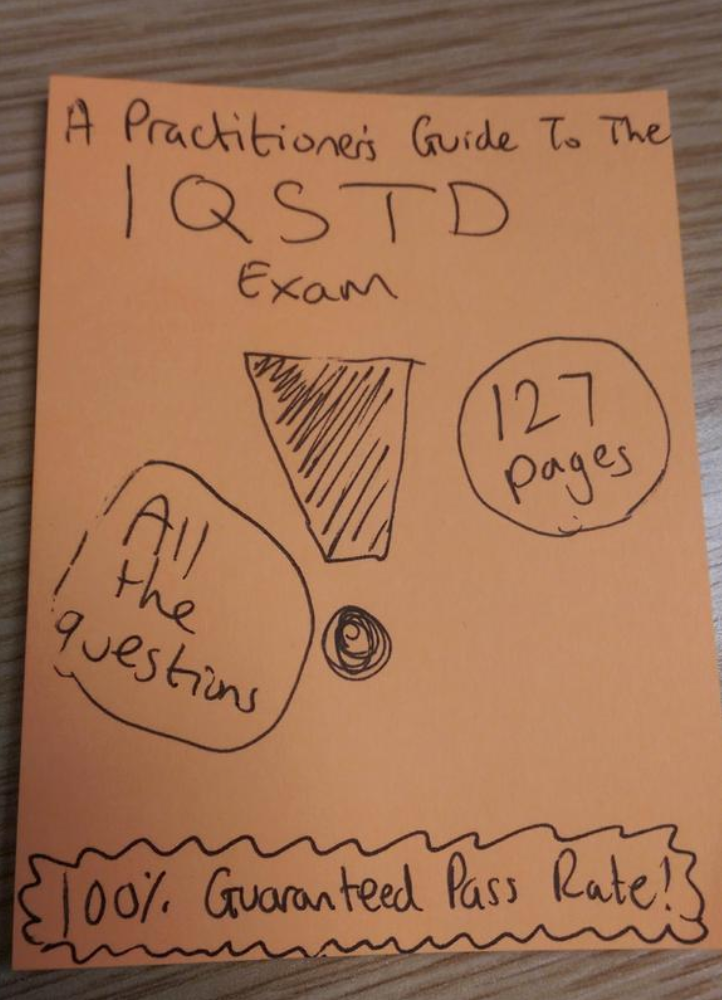 A Practitioner's Guide To The
IQSTD
Exam
127
pages
All
the
questions
100% Guaranteed Pass Rate!